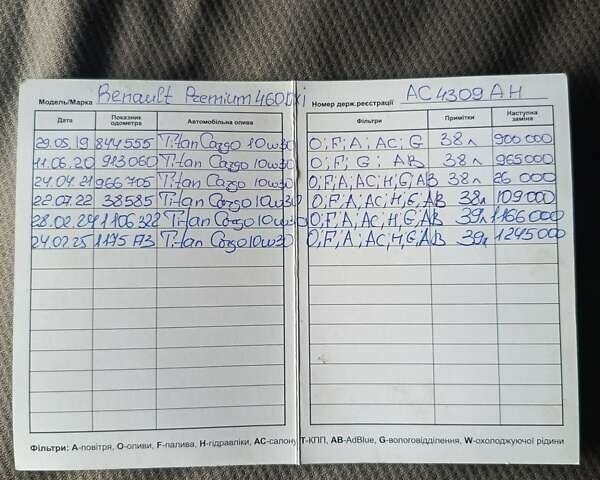 Модель/Марка Renault Premium 460 DXi Номер держ.реєстрації AC 4309 AH
Дата Показник одометра Автомобільна олива Фільтри Примітки Наступна заміна
29.05.19 844555 Titan Cargo 10w30 O; F; A; AC; G 38л 900 000
11.06.20 913060 Titan Cargo 10w30 O; F; G; AB 38л 965000
24.04.21 966705 Titan Cargo 10w30 O, F, A, AC, H, G, AB 38л 26 000
22.07.22 38585 Titan Cargo 10w30 O, F, A, AC, H, G, AB 38л 109 000
28.02.24 1106322 Titan Cargo 10w30 O; F; A; AC; H; G; AB 39л 1166000
24.02.25 Titan Cargo 10w30 O; F; A; AC; H; G; AB 39л 1245000
Фільтри: A-повітря, O-оливи, F-палива, H-гідравліки, AC-салону, T-КПП, AB-AdBlue, G-вологовідділення, W-охолоджуючої рідини